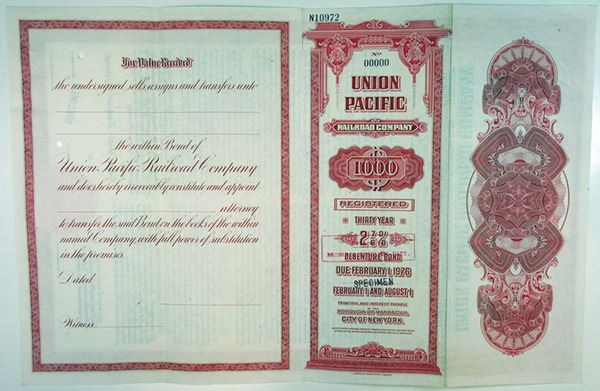 For Value Received
the undersigned sells, assigns and transfers unto
the within Bond of
Union Pacific Railroad Company
and does hereby irrevocably constitute and appoint
attorney
to transfer the said Bond on the books of the within
named Company, with full power of substitution
in the premises.
Dated
Witness
N10972
No
00000
UNION
PACIFIC
RAILROAD COMPANY
1000
REGISTERED
THIRTY YEAR
DEBENTURE BOND
DUE FEBRUARY 1, 1976
SPECIMEN
FEBRUARY 1 AND AUGUST 1
PRINCIPAL AND INTEREST PAYABLE
IN THE
BOROUGH OF MANHATTAN
CITY OF NEW YORK.